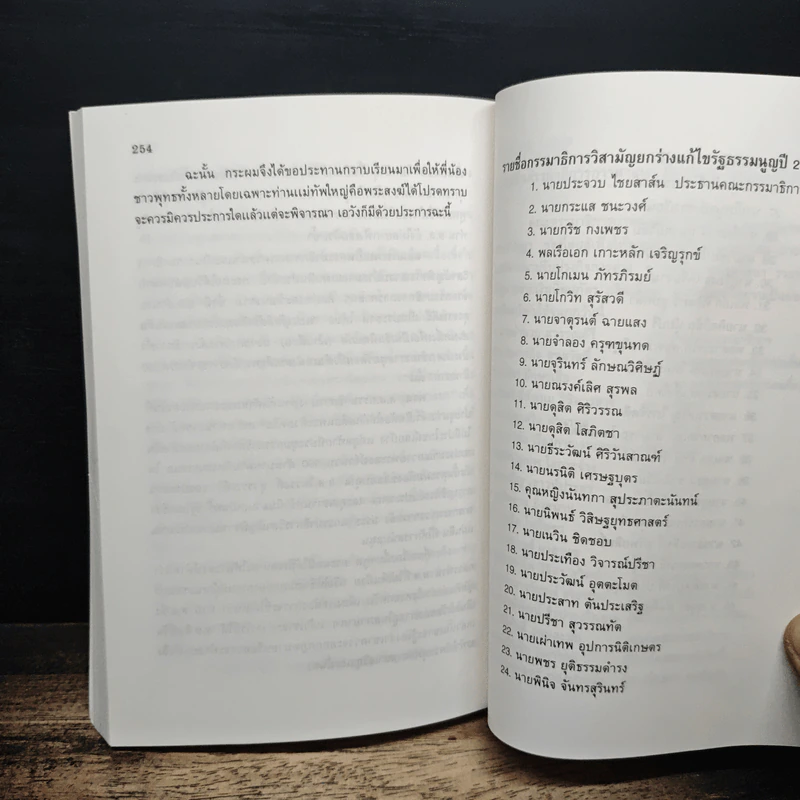 254
ฉะนั้น กระผมจึงได้ขอประทานกราบเรียนมาเพื่อให้พี่น้อง
ชาวพุทธทั้งหลายโดยเฉพาะท่านแม่ทัพใหญ่คือพระสงฆ์ได้โปรดทราบ
จะควรมิควรประการใดแล้วแต่จะพิจารณา เอวังก็มีด้วยประการฉะนี้
รายชื่อกรรมาธิการวิสามัญยกร่างแก้ไขรัฐธรรมนูญปี 2
1. นายประจวบ ไชยสาส์น ประธานคณะกรรมาธิกา
2. นายกระแส ชนะวงศ์
3. นายกริช กงเพชร
4. พลเรือเอก เกาะหลัก เจริญรุกข์
5. นายโกเมน ภัทรภิรมย์
6. นายโกวิท สุรัสวดี
7. นายจาตุรนต์ ฉายแสง
8. นายจำลอง ครุฑขุนทด
9. นายจุรินทร์ ลักษณวิศิษฏ์
10. นายณรงค์เลิศ สุรพล
11. นายดุสิต ศิริวรรณ
12. นายดุสิต โสภิตชา
13. นายธีระวัฒน์ ศิริวันสาณฑ์
14. นายนรนิติ เศรษฐบุตร
15. คุณหญิงนันทกา สุประภาตะนันทน์
16. นายนิพนธ์ วิสิษฐยุทธศาสตร์
17. นายเนวิน ชิดชอบ
18. นายประเทือง วิจารณ์ปรีชา
19. นายประวัฒน์ อุตตะโมต
20. นายประสาท ตันประเสริฐ
21. นายปรีชา สุวรรณทัต
22. นายเผ่าเทพ อุปการนิติเกษตร
23. นายพชร ยุติธรรมดำรง
24. นายพินิจ จันทรสุรินทร์